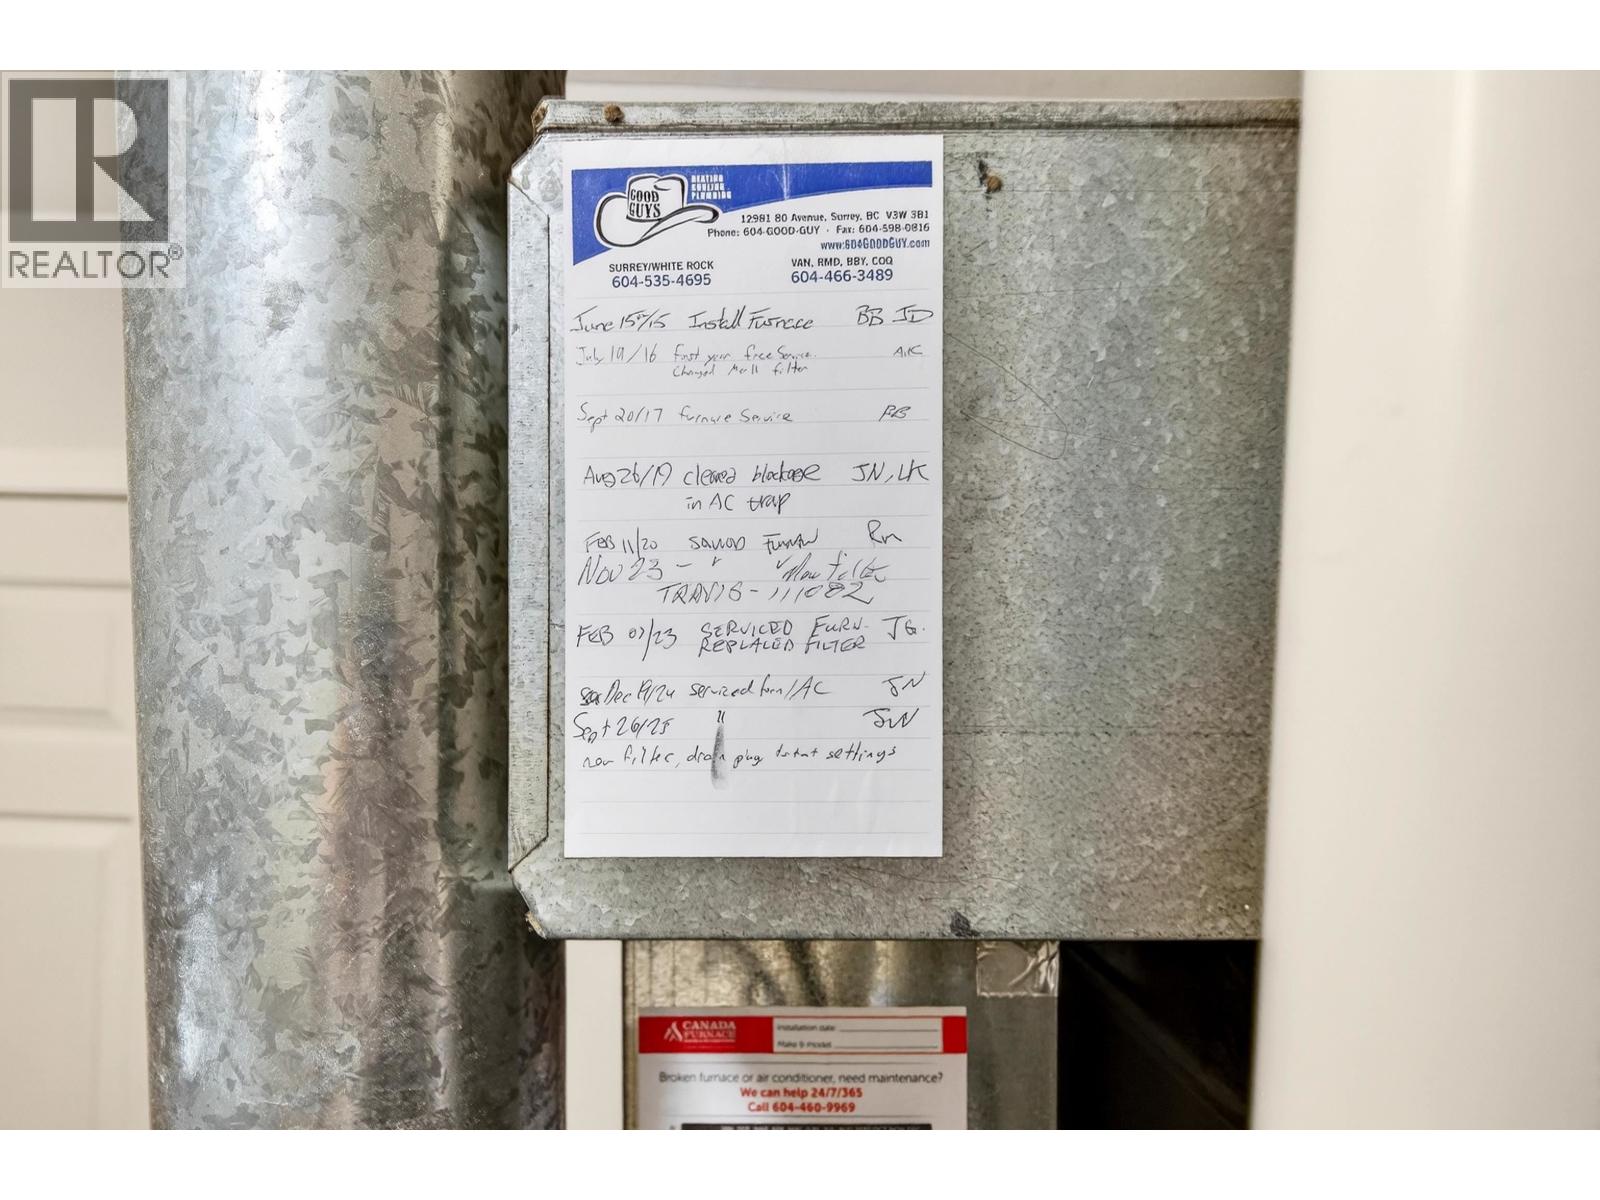 REALTOR®
GOOD GUYS
HEATING
COOLING
PLUMBING
12981 80 Avenue, Surrey, BC V3W 3B1
Phone: 604-GOOD-GUY · Fax: 604-598-0816
www.604GOODGUY.com
SURREY/WHITE ROCK
604-535-4695
VAN, RMD, BBY, COQ
604-466-3489
June 15th/15 Install Furnace BB JD
July 19/16 first year free Service.
Changed filter
Sept 20/17 furnace Service BB
Aug 26/19 cleared blockage JN, LK
in AC trap
FEB 11/20
NOV 23 - " " New filter
TRAVIS - 111082
FEB 07/23 SERVICED FURN. JG.
REPLACED FILTER
Dec 19/24 serviced furn/AC JN
Sept 26/25 " JW
new filter, drain plug settings
CANADA
FURNACE
Installation date
Make & model
Broken furnace or air conditioner, need maintenance?
We can help 24/7/365
Call 604-460-9969